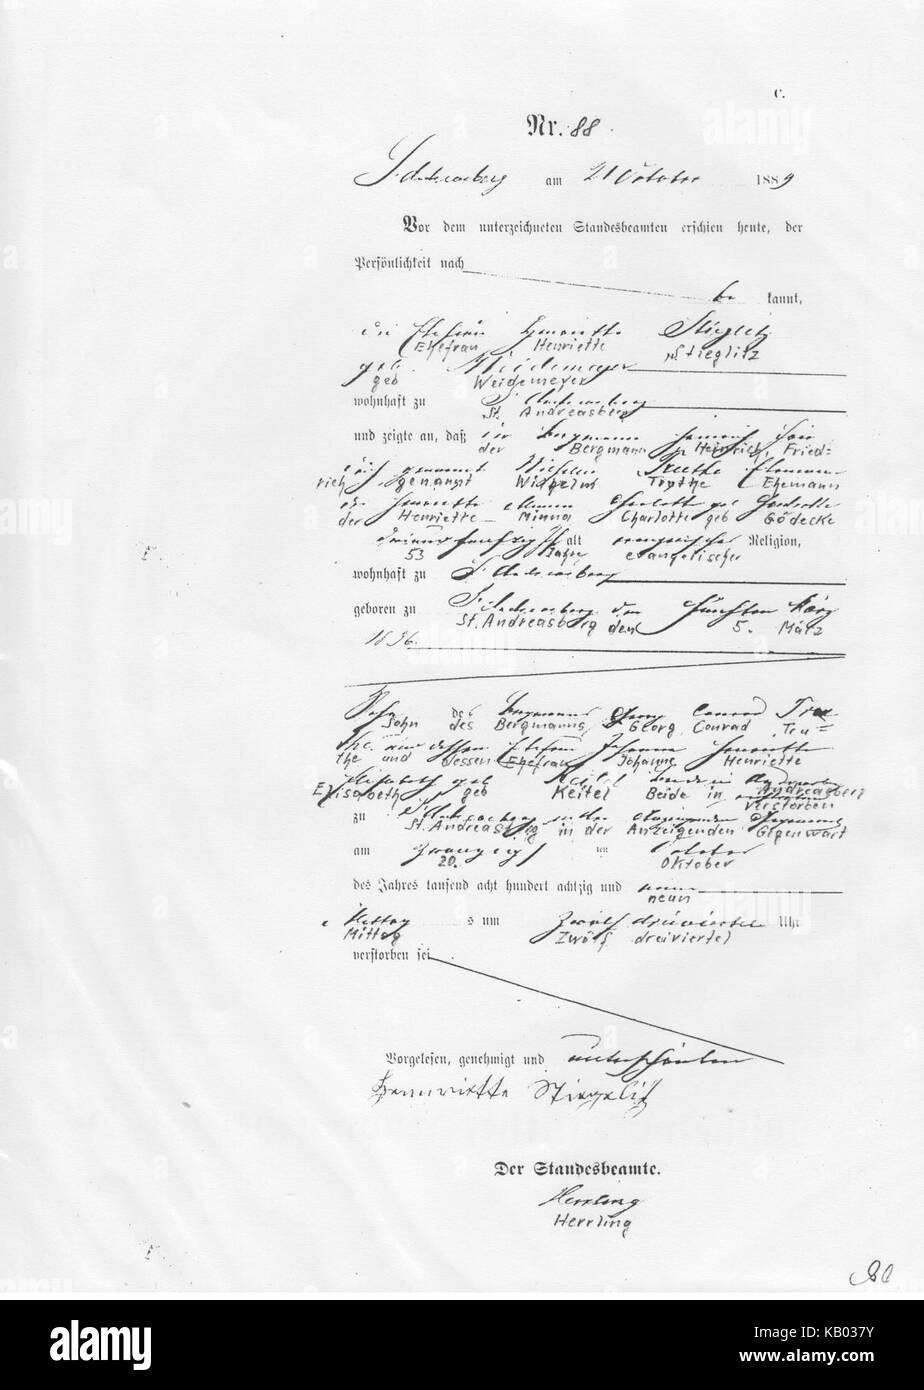 C.
Nr. 88.
St. Andreasberg am 21 October 1889
Vor dem unterzeichneten Standesbeamten erschien heute, der
Persönlichkeit nach
be kannt,
die Ehefrau Henriette Stieglitz
Ehefrau Henriette Stieglitz
geb Weidemeyer
geb Weidemeyer
wohnhaft zu St. Andreasberg
St. Andreasberg
und zeigte an, daß der Bergmann Heinrich Fried-
der Bergmann Heinrich, Fried-
rich genannt Wilhelm Treuthe Ehemann
rich genannt Wilhelm Ehemann
der Henriette Minna Charlotte geb Gödecke
der Henriette Minna Charlotte geb Gödecke
dreiundfunfzig J alt evangelischer Religion,
53 Jahre evangelischer
wohnhaft zu St. Andreasberg
geboren zu St. Andreasberg den fünften März
St. Andreasberg den 5. März
1836.
Sohn des Bergmanns Georg Conrad Treu
Sohn des Bergmanns Georg Conrad Treu=
the und dessen Ehefrau Johanne Henriette
the und dessen Ehefrau Johanne Henriette
Elisabeth geb Keitel beide in Andreasberg
Elisabeth geb Keitel Beide in Andreasberg
verstorben
zu St. Andreasberg in der Anzeigenden Gegenwart
St. Andreasberg in der Anzeigenden Gegenwart
am zwanzigsten October
20. Oktober
des Jahres tausend acht hundert achtzig und neun
neun
Mittags um zwölf dreiviertel Uhr
Mittag Zwölf dreiviertel
verstorben sei
Vorgelesen, genehmigt und unterschrieben
Hennriette Stiegelitz
Der Standesbeamte.
Herrling
Herrling
alamy
Image ID: KB037Y
www.alamy.com